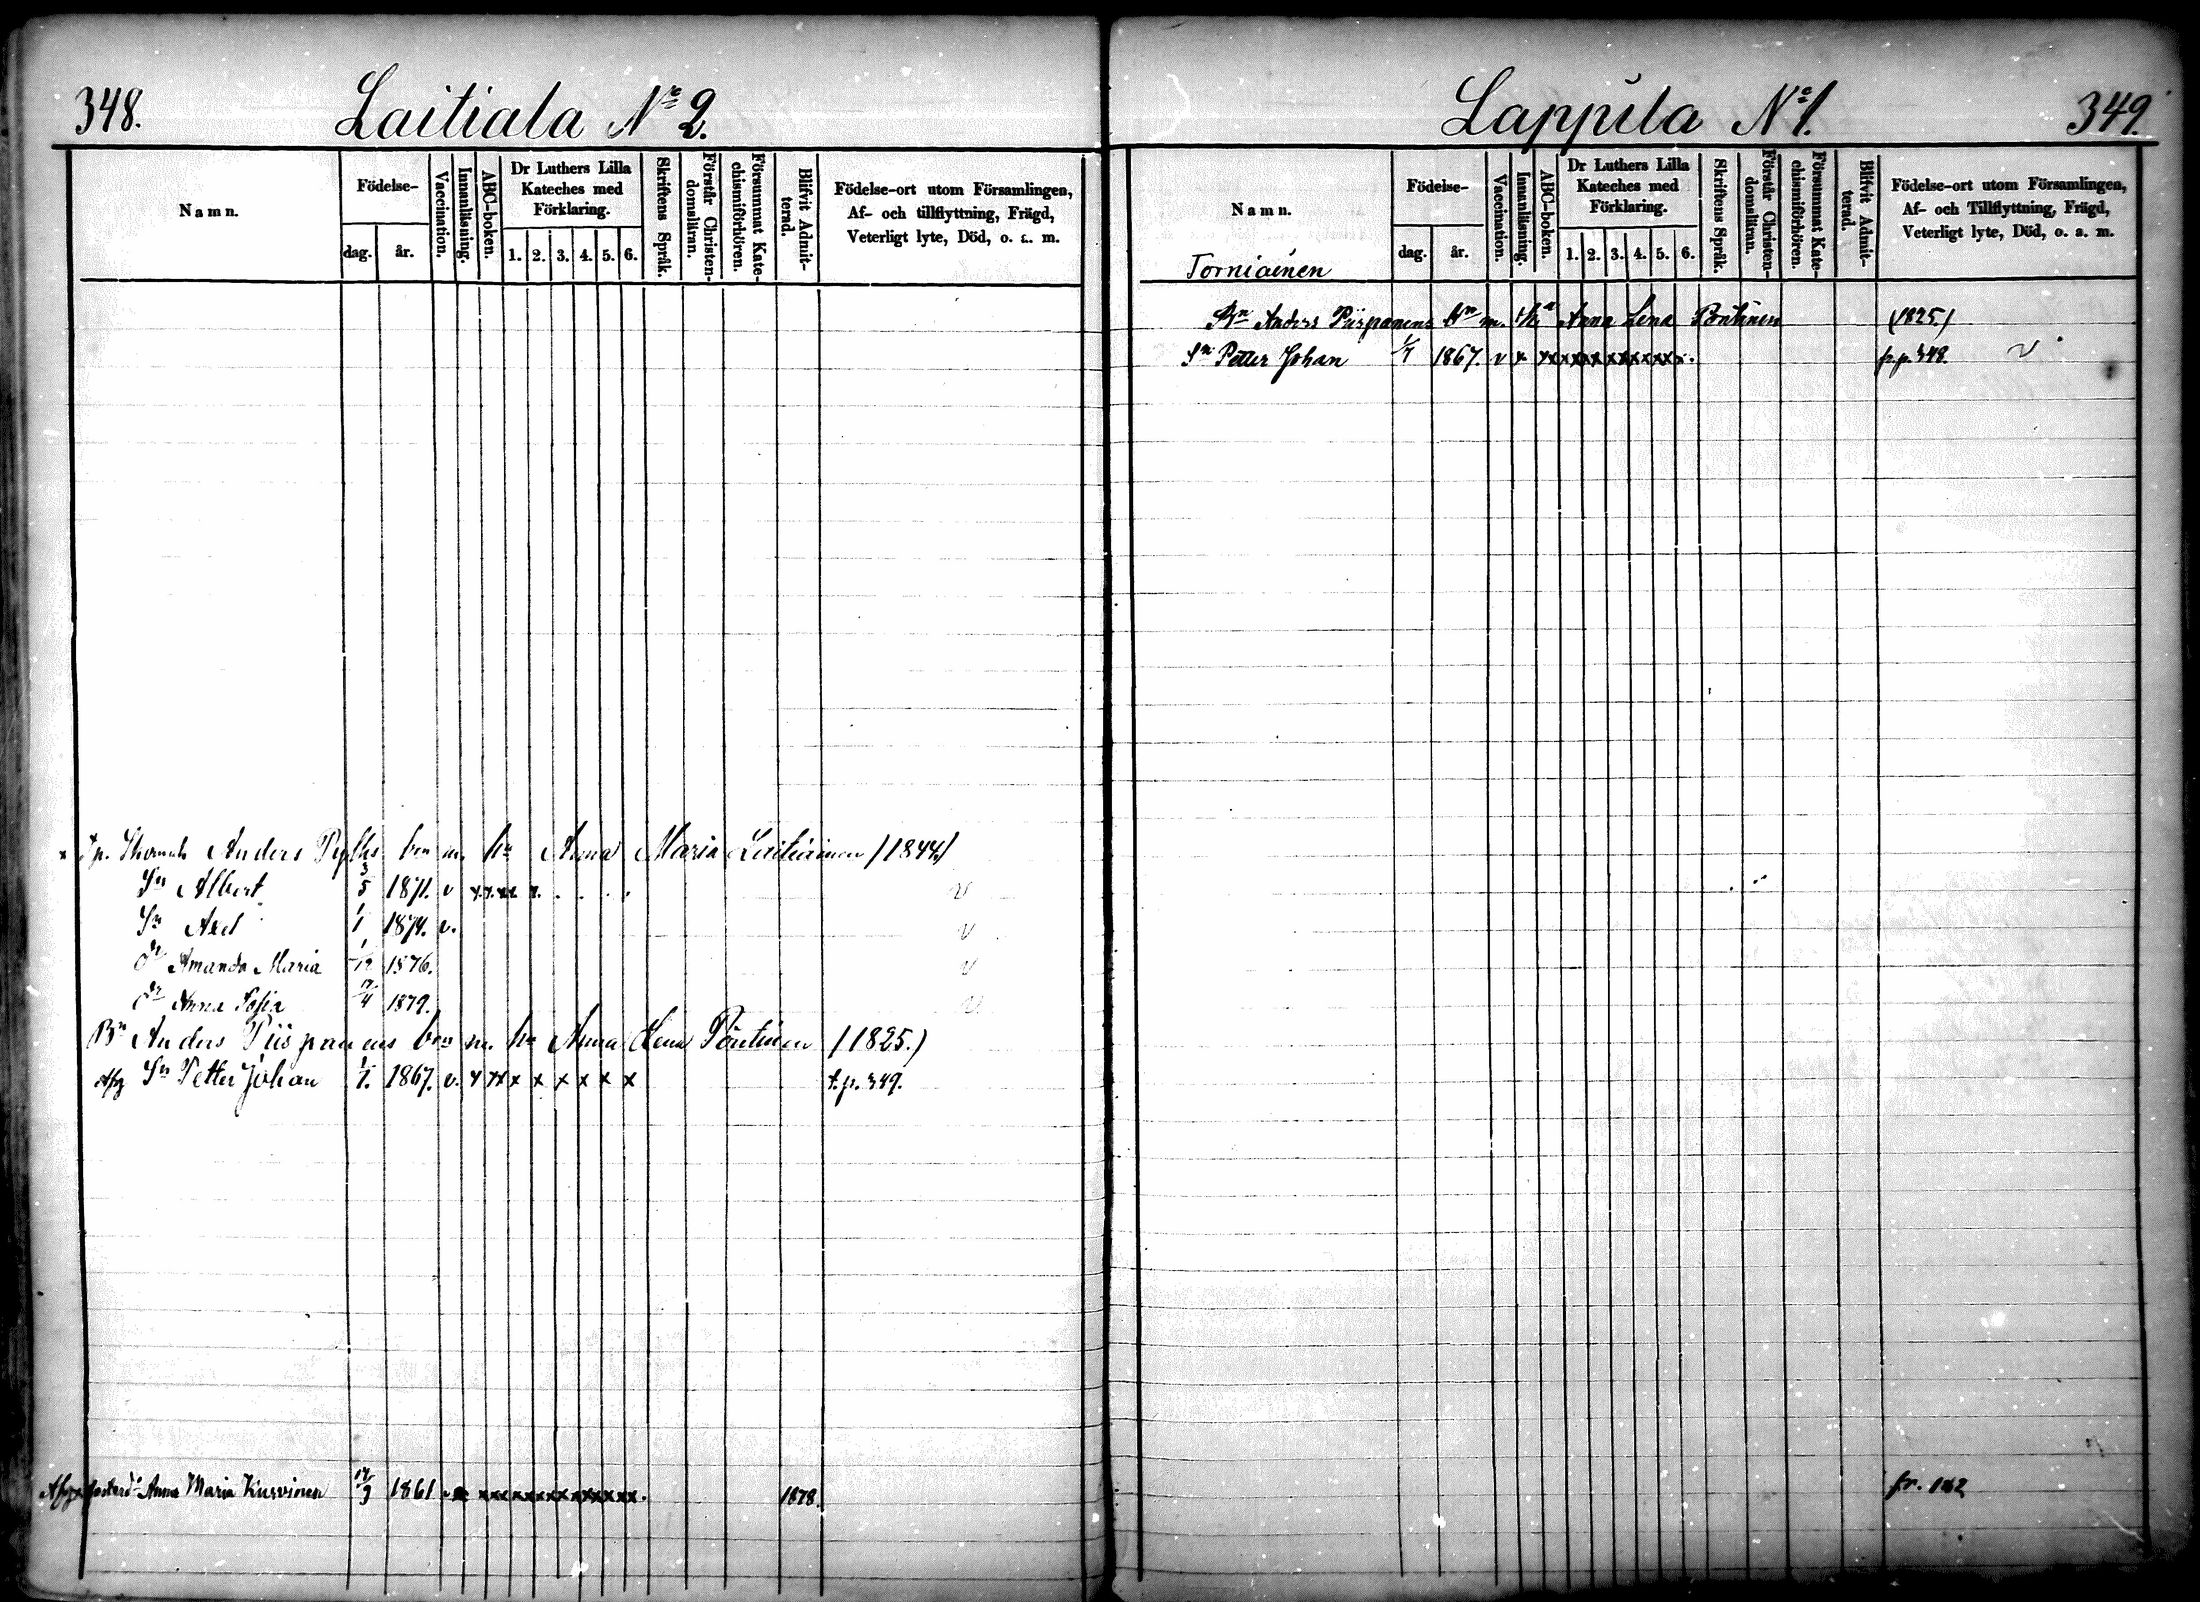 348.
Laitiala No 2.
Namn.
Födelse-
dag.
år.
Vaccination.
Innanläsning.
ABC-boken.
Dr Luthers Lilla
Kateches med
Förklaring.
1. 2. 3. 4. 5. 6.
Skriftens Språk.
Förstår Christen-
domsläran.
Försummat Kate-
chismiförhören.
Blifvit Admit-
terad.
Födelse-ort utom Församlingen,
Af- och tillflyttning, Frägd,
Veterligt lyte, Död, o. s. m.
Anders barn m. hu Anna Maria Laitiainen (1844)
Sn Albert 3/5 1871. v x.x.xx x. . . . . v
Sn Axel 1/1 1874. v. v
dr Amanda Maria 1/12 1876. v
dr Anna Sofia 1879. v
Bn Anders Piispanens barn m. hu Anna Lena Pöntinen (1825.)
Afg Sn Petter Johan 1/7. 1867. v. x xx x x x x x x t.p. 349.
Anna Maria Kurvinen 1861 xxxxxxxxxxxxxx. 1878.
Lappila No 1.
349.
Namn.
Födelse-
dag.
år.
Vaccination.
Innanläsning.
ABC-boken.
Dr Luthers Lilla
Kateches med
Förklaring.
1. 2. 3. 4. 5. 6.
Skriftens Språk.
Förstår Christen-
domsläran.
Försummat Kate-
chismiförhören.
Blifvit Admit-
terad.
Födelse-ort utom Församlingen,
Af- och Tillflyttning, Frägd,
Veterligt lyte, Död, o. s. m.
Torniainen
Bn Anders Piispanens bn m. Anna Lena Pöntinen (1825)
Sn Petter Johan 1/7 1867. v x xxxxxxxxxxxx. fr.p. 348. v
fr. 142